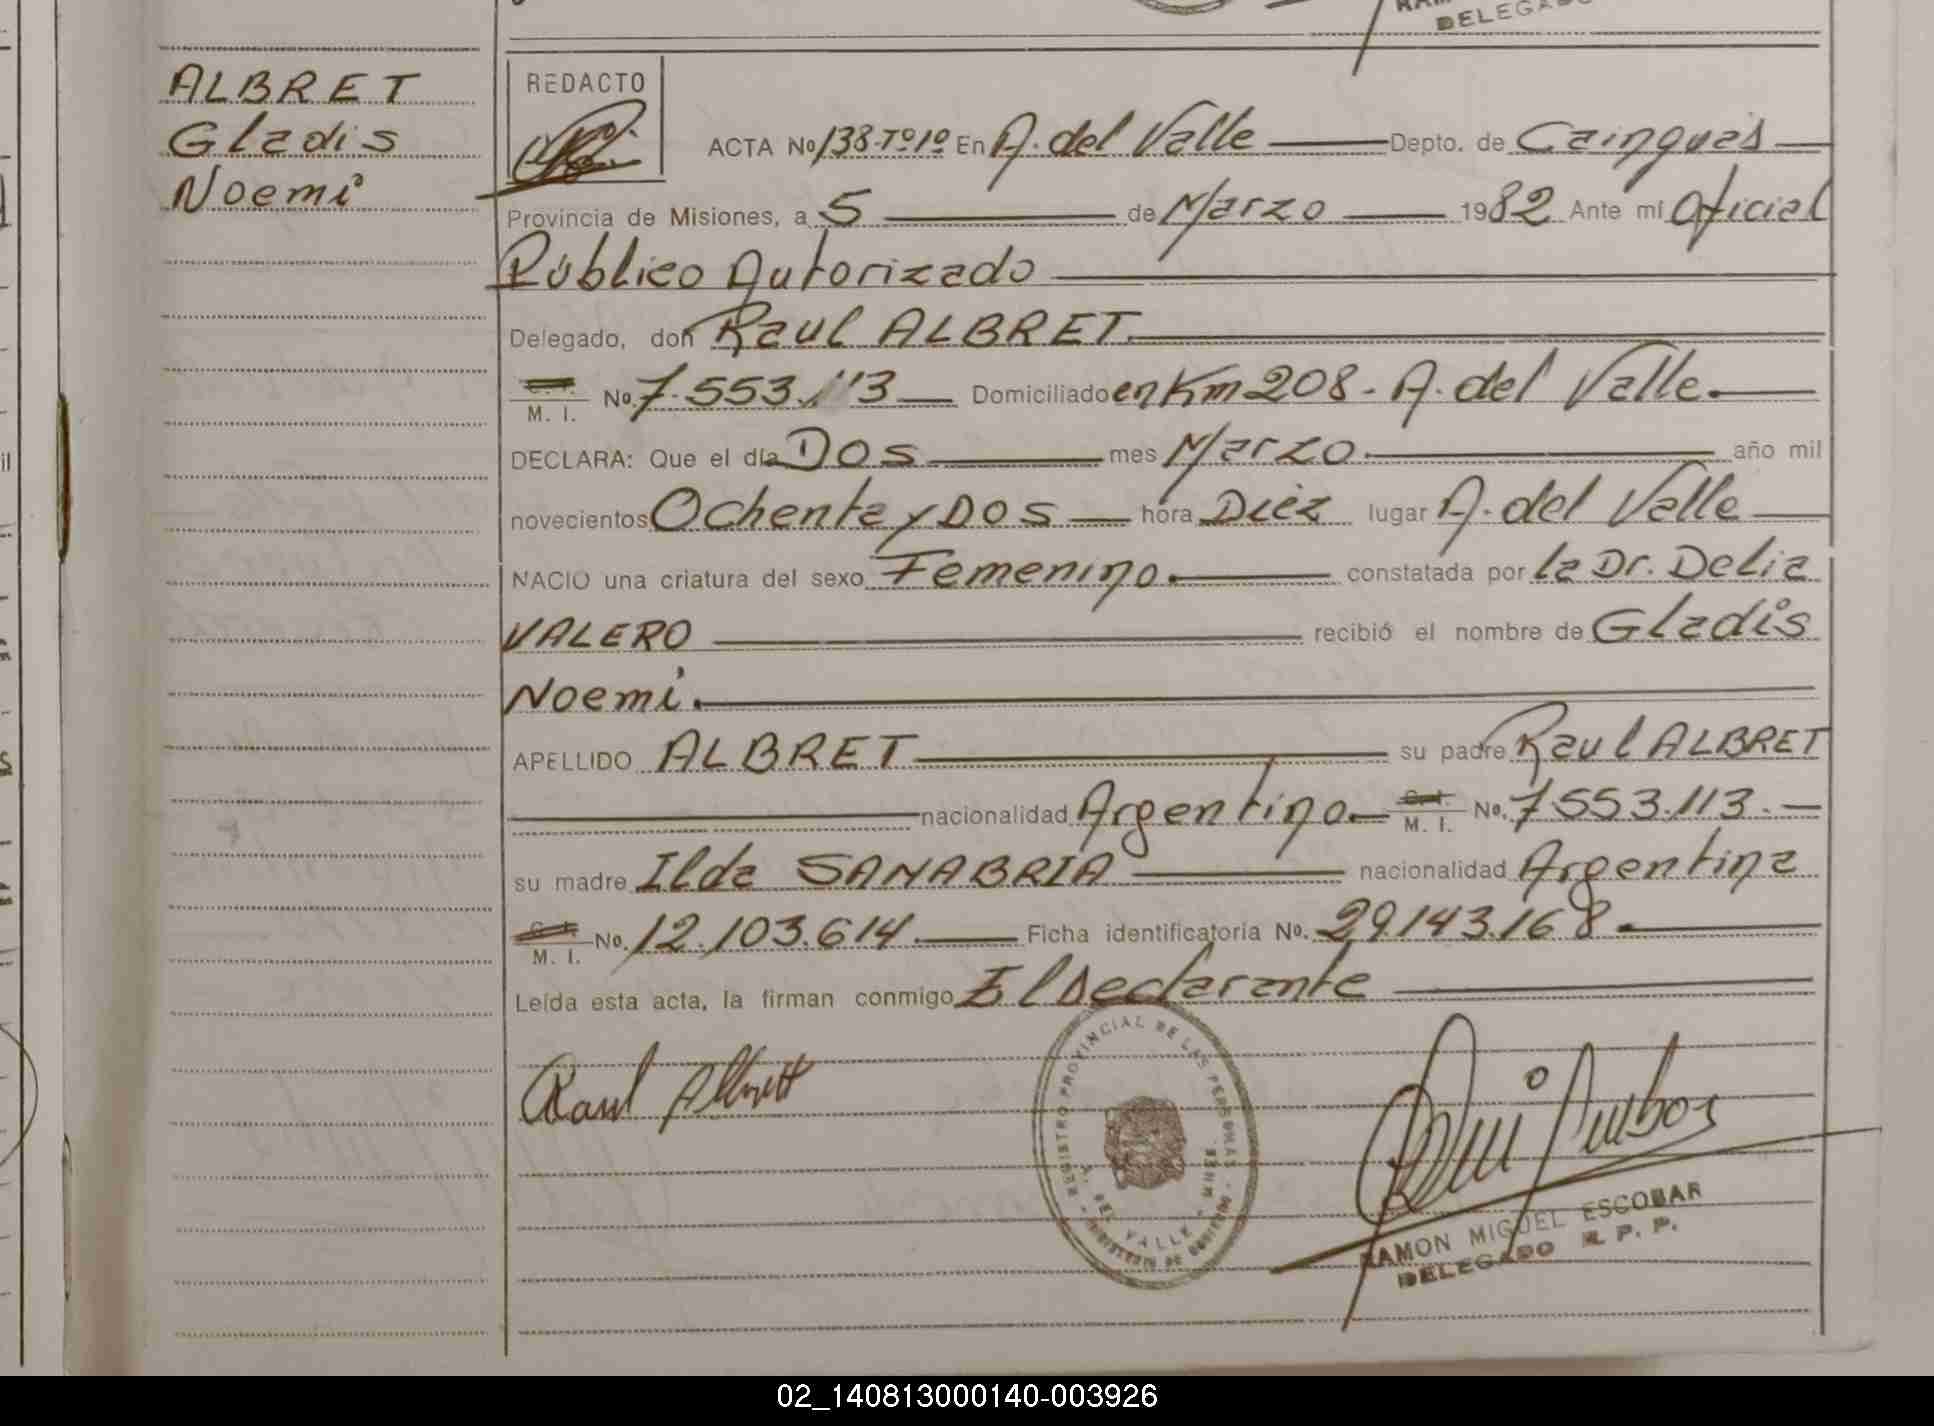 DELEGADO
ALBRET
Gladis
Noemi
REDACTO
ACTA Nº 138-Tº1º En A. del Valle Depto. de Cainguás
Provincia de Misiones, a 5 de Marzo 1982 Ante mí Oficial
Público Autorizado
Delegado, don Raul ALBRET
C. I. M. I. No. 7.553.113 Domiciliado en Km 208 - A. del Valle.
DECLARA: Que el día Dos mes Marzo año mil
novecientos Ochenta y Dos hora Diez lugar A. del Valle
NACIO una criatura del sexo Femenino. constatada por la Dr. Delia
VALERO recibió el nombre de Gladis
Noemi.
APELLIDO ALBRET su padre Raul ALBRET
nacionalidad Argentino. C. I. M. I. No. 7553.113.
su madre Ilda SANABRIA nacionalidad Argentina
C. I. M. I. No. 12.103.614 Ficha identificatoria No. 29.143.168
Leída esta acta, la firman conmigo El Declarante
Raul Albrett
REGISTRO PROVINCIAL DE LAS PERSONAS
A. DEL VALLE
RAMON MIGUEL ESCOBAR
DELEGADO R. P. P.
02_140813000140-003926